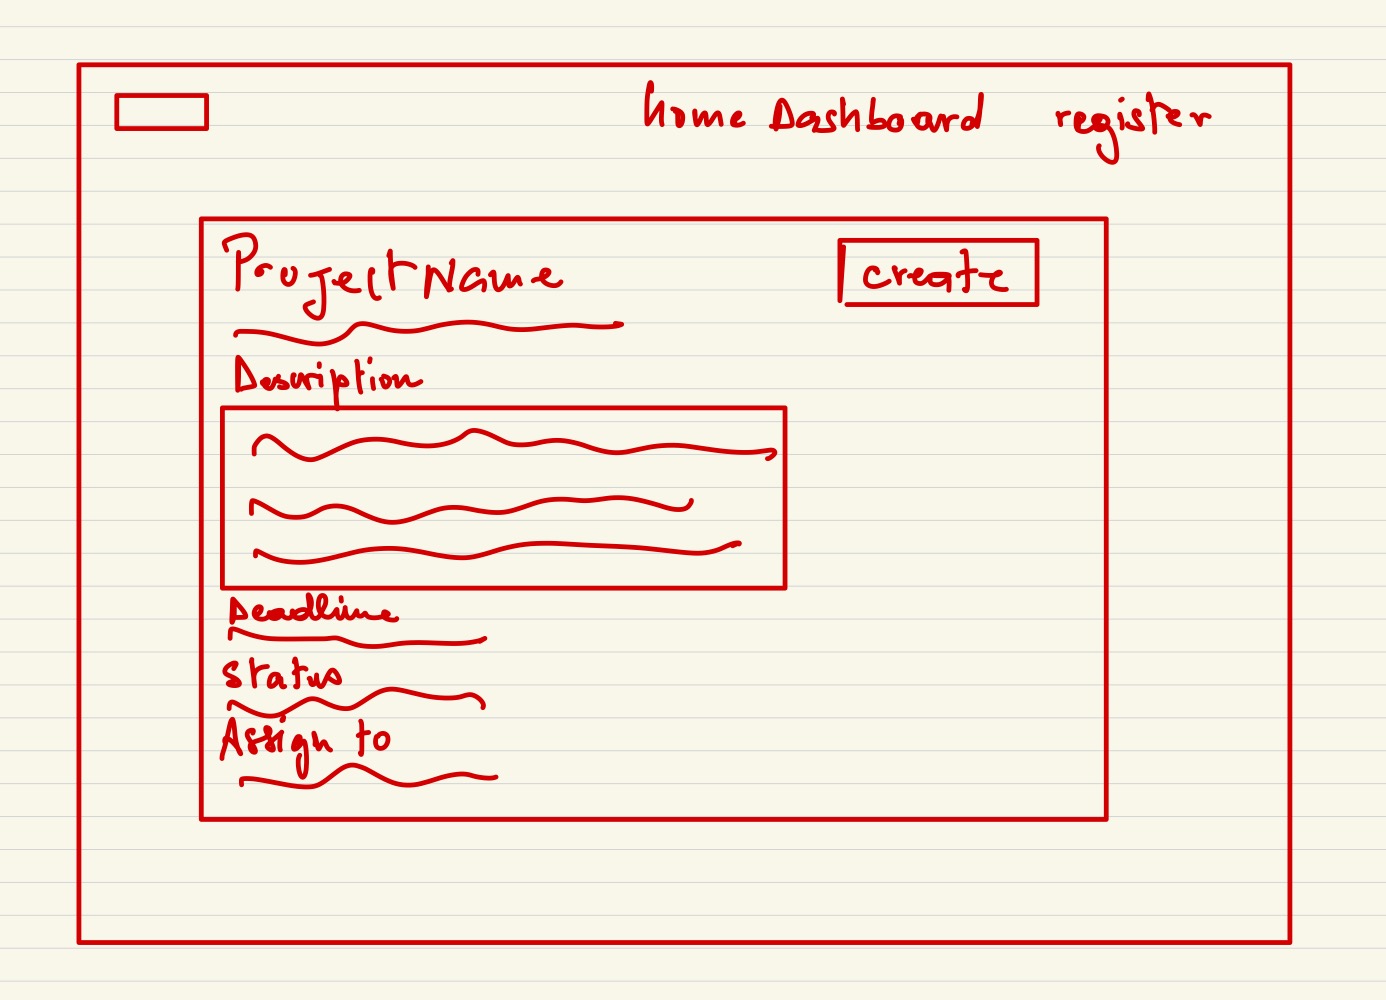 home Dashboard register
Project Name
create
Description
Deadline
Status
Assign to